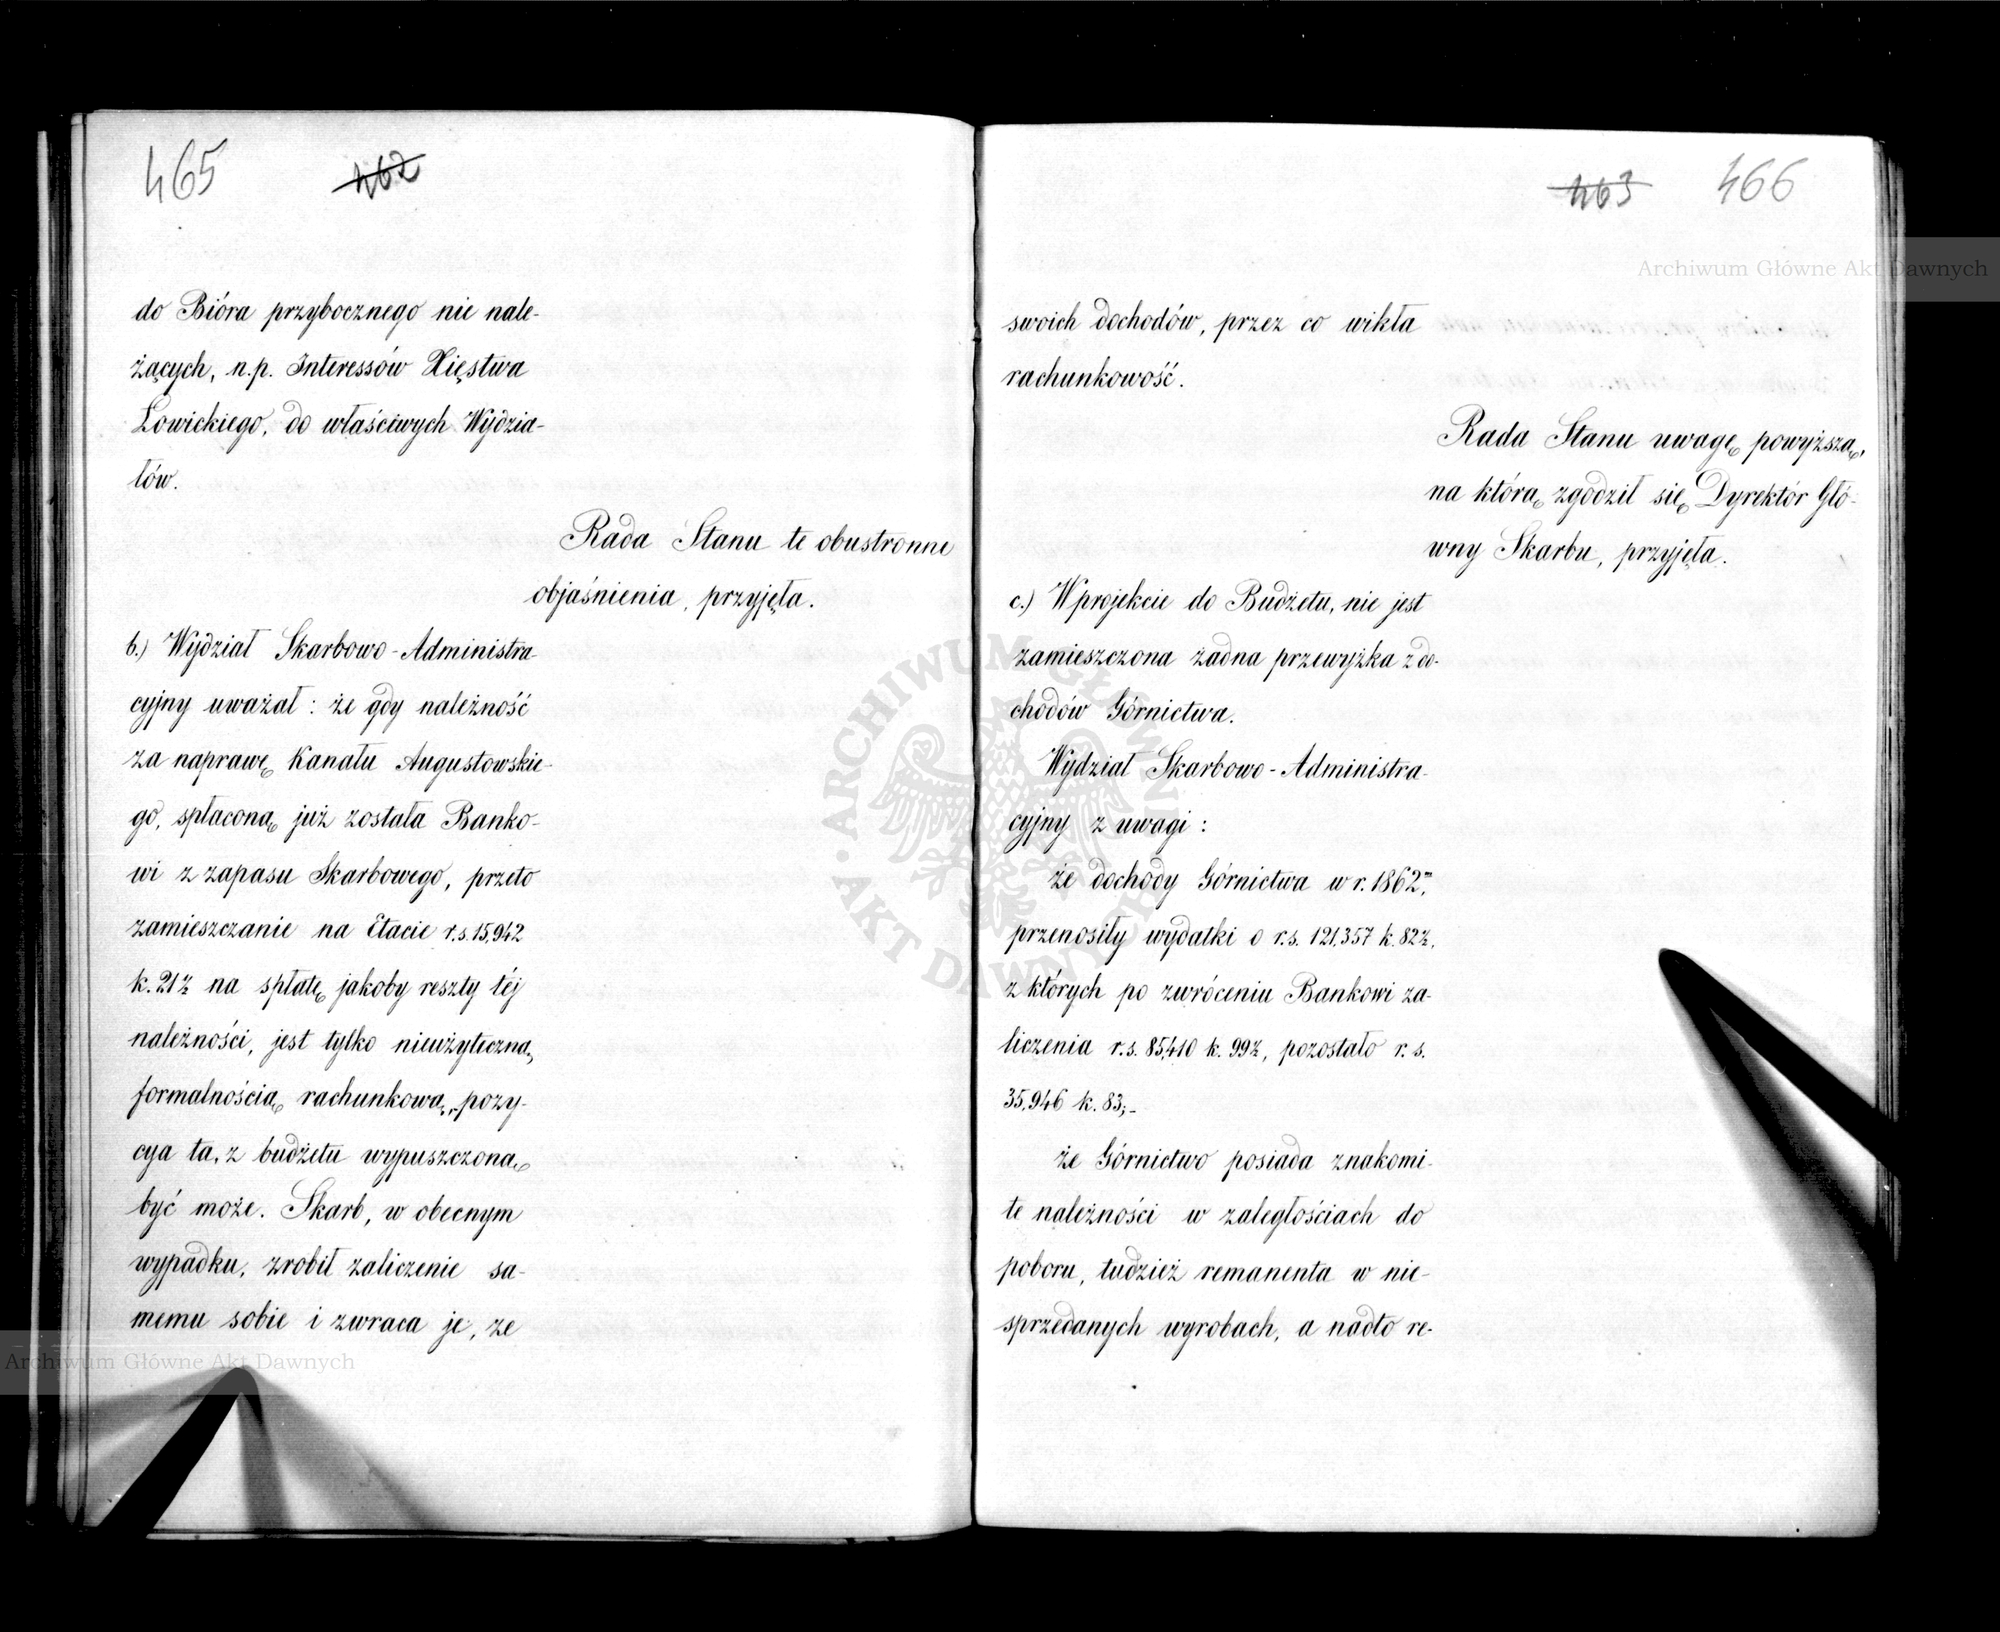 465 462
do Bióra przybocznego nie nale-
żących, n.p. Interessów Xięstwa
Łowickiego, do właściwych Wydzia-
łów.
Rada Stanu te obustronne
objaśnienia, przyjęła.
b.) Wydział Skarbowo-Administra-
cyjny uważał: że gdy należność
za naprawę Kanału Augustowskie-
go, spłaconą już została Banko-
wi z zapasu Skarbowego, przeto
zamieszczanie na Etacie r.s. 15,942
k. 21½ na spłatę jakoby reszty téj
należności, jest tylko nieużyteczną
formalnością rachunkową, pozy-
cya ta, z budżetu wypuszczoną
być może. Skarb, w obecnym
wypadku, zrobił zaliczenie sa-
memu sobie i zwraca je, ze
463 466
swoich dochodów, przez co wikła
rachunkowość.
Rada Stanu uwagę powyższą,
na którą zgodził się Dyrektór Głó-
wny Skarbu, przyjęła.
c.) W projekcie do Budżetu, nie jest
zamieszczona żadna przewyżka z do-
chodów Górnictwa.
Wydział Skarbowo-Administra-
cyjny z uwagi:
że dochody Górnictwa w r. 1862m,
przenosiły wydatki o r.s. 121,357 k. 82½,
z których po zwróceniu Bankowi za-
liczenia r.s. 85,410 k. 99½, pozostało r.s.
35,946 k. 83;-
że Górnictwo posiada znakomi-
te należności w zaległościach do
poboru, tudzież remanenta w nie-
sprzedanych wyrobach, a nadto re-
Archiwum Główne Akt Dawnych
ARCHIWUM GŁÓWNE AKT DAWNYCH
Archiwum Główne Akt Dawnych